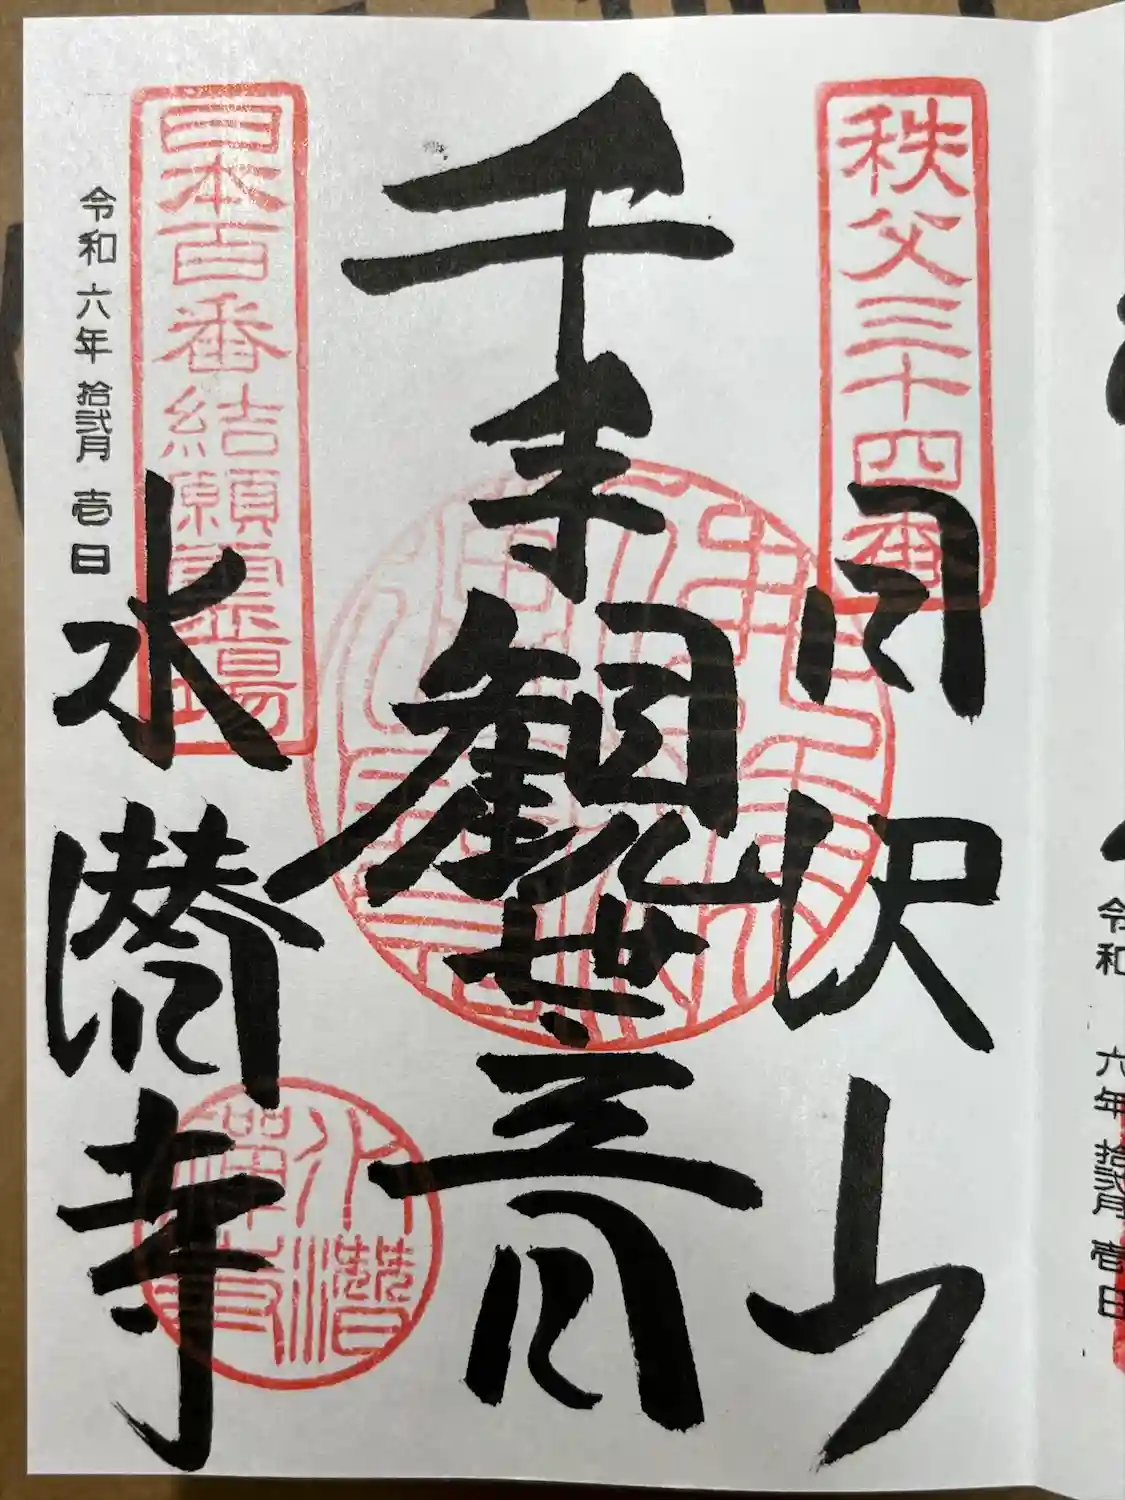 令和六年拾弐月壱日
秩父三十四番
日沢山
千手観世音
日本百番結願霊場
水潜寺
水潜禅寺
令和六年拾弐月壱日